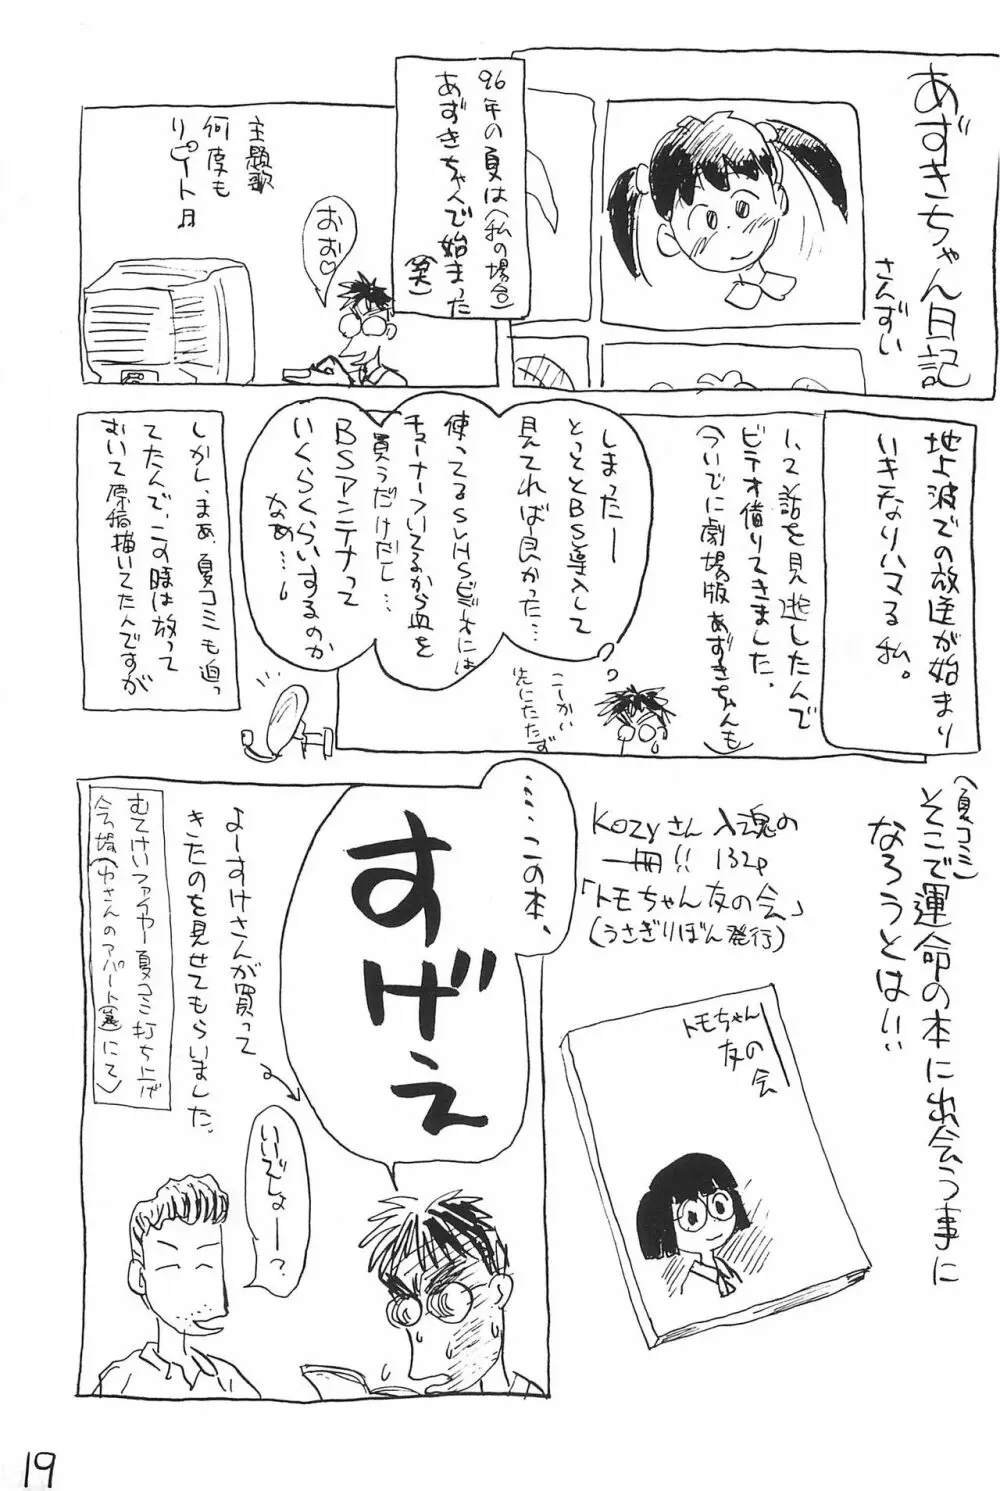 あずきちゃん日記。
さんずい
96年の夏は(私の場合)
あずきちゃんで始まった
(笑)
主題歌
何度も
リピート♪
おお♡
地上波での放送が始まり
いキなりハマる私。
1、2話を見逃したんで
ビデオ借りてきました。
(ついでに劇場版あずきちゃんも)
しまったー
とっととBS導入して
見てれば良かった…
使ってるSVHSビデオには
チューナーついてるから皿を
買うだけだし…
BSアンテナって
いくらくらいするのか
なぁ…
こーかい
先にたたず
しかし、まあ、夏コミも迫っ
てたんで、この時は放って
おいて原稿描いてたんですが
(夏コミ)
そこで運命の本に出会う事に
なろうとは!!
KOZYさん入魂の
一冊!! 132p
「トモちゃん友の会」
(うさぎりぼん発行)
トモちゃん
友の会
……この本、
すげえ
よーすけさんが買って
きたのを見せてもらいました。
いいでしょー?
むてけいファイヤー夏コミ打ち上げ
会場
さんのアパート
にて)
19